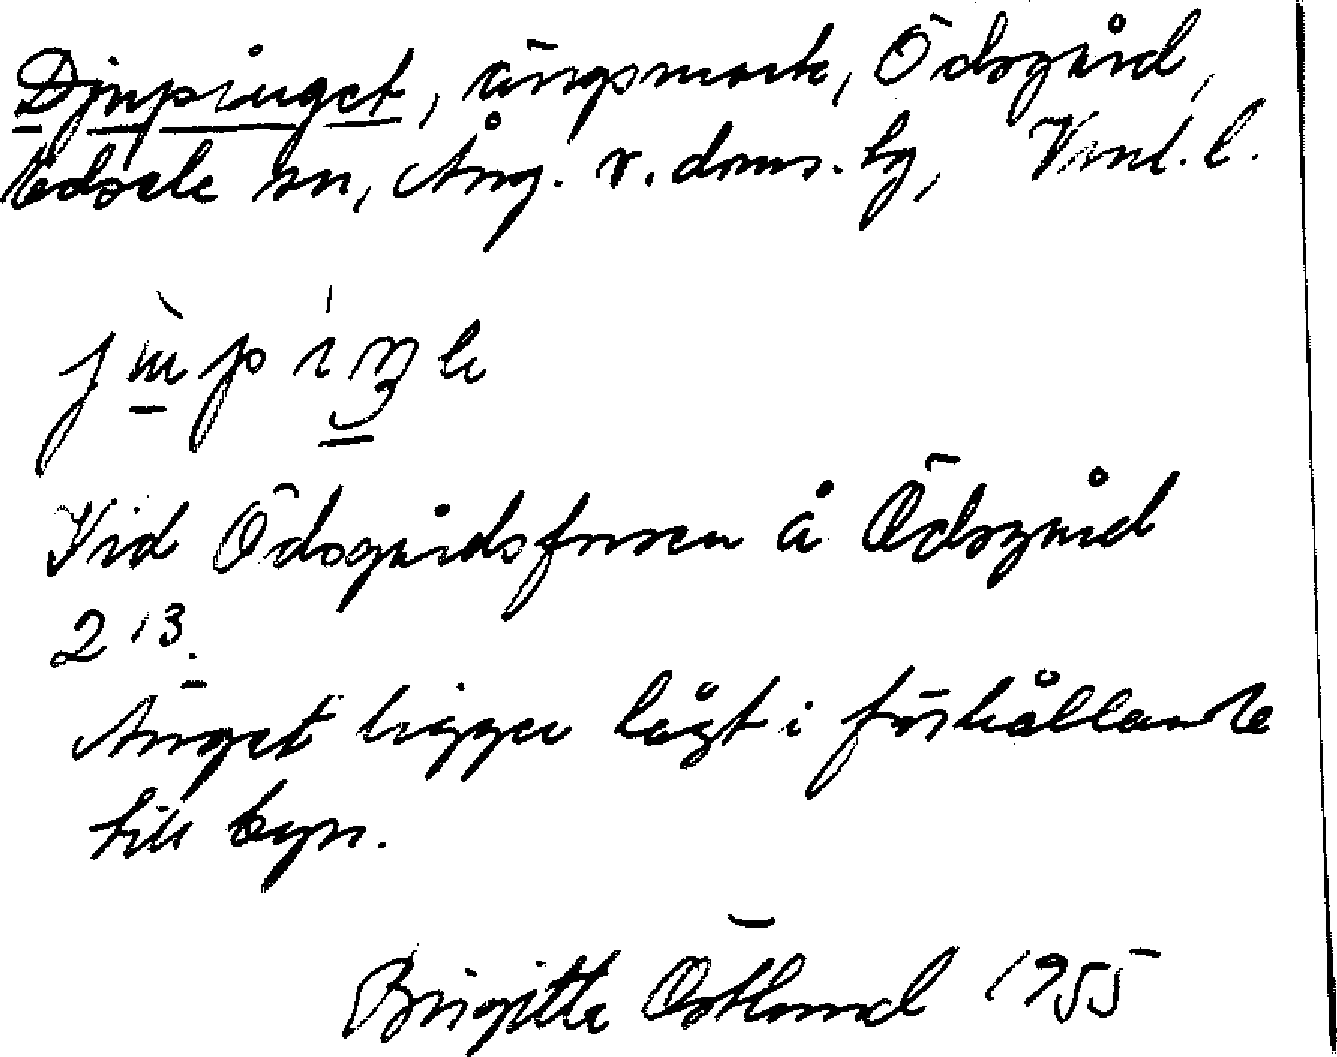 Djupänget, ängsmark, Ödsgård,
Edsele sn, Ång. v. doms. hg, Vnl. l.
Vid Ödsgårdsforsen å Ödsgård
2, 3.
Änget ligger lågt i förhållande
till byn.
Birgitta Östlund 1955